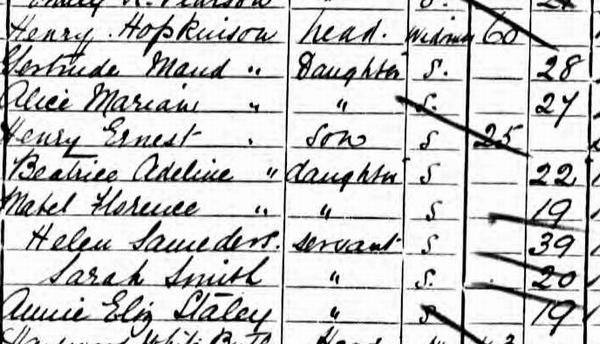 Pearson " S. 24
Henry Hopkinson head. Widower 60
Gertrude Maud " Daughter S. 28
Alice Marian " " S. 27
Henry Ernest " son S 25
Beatrice Adeline " daughter S 22
Mabel Florence " " S 19
Helen Saunders. servant S 39
Sarah Smith " S. 20
Annie Eliz Staley " S 19
Head